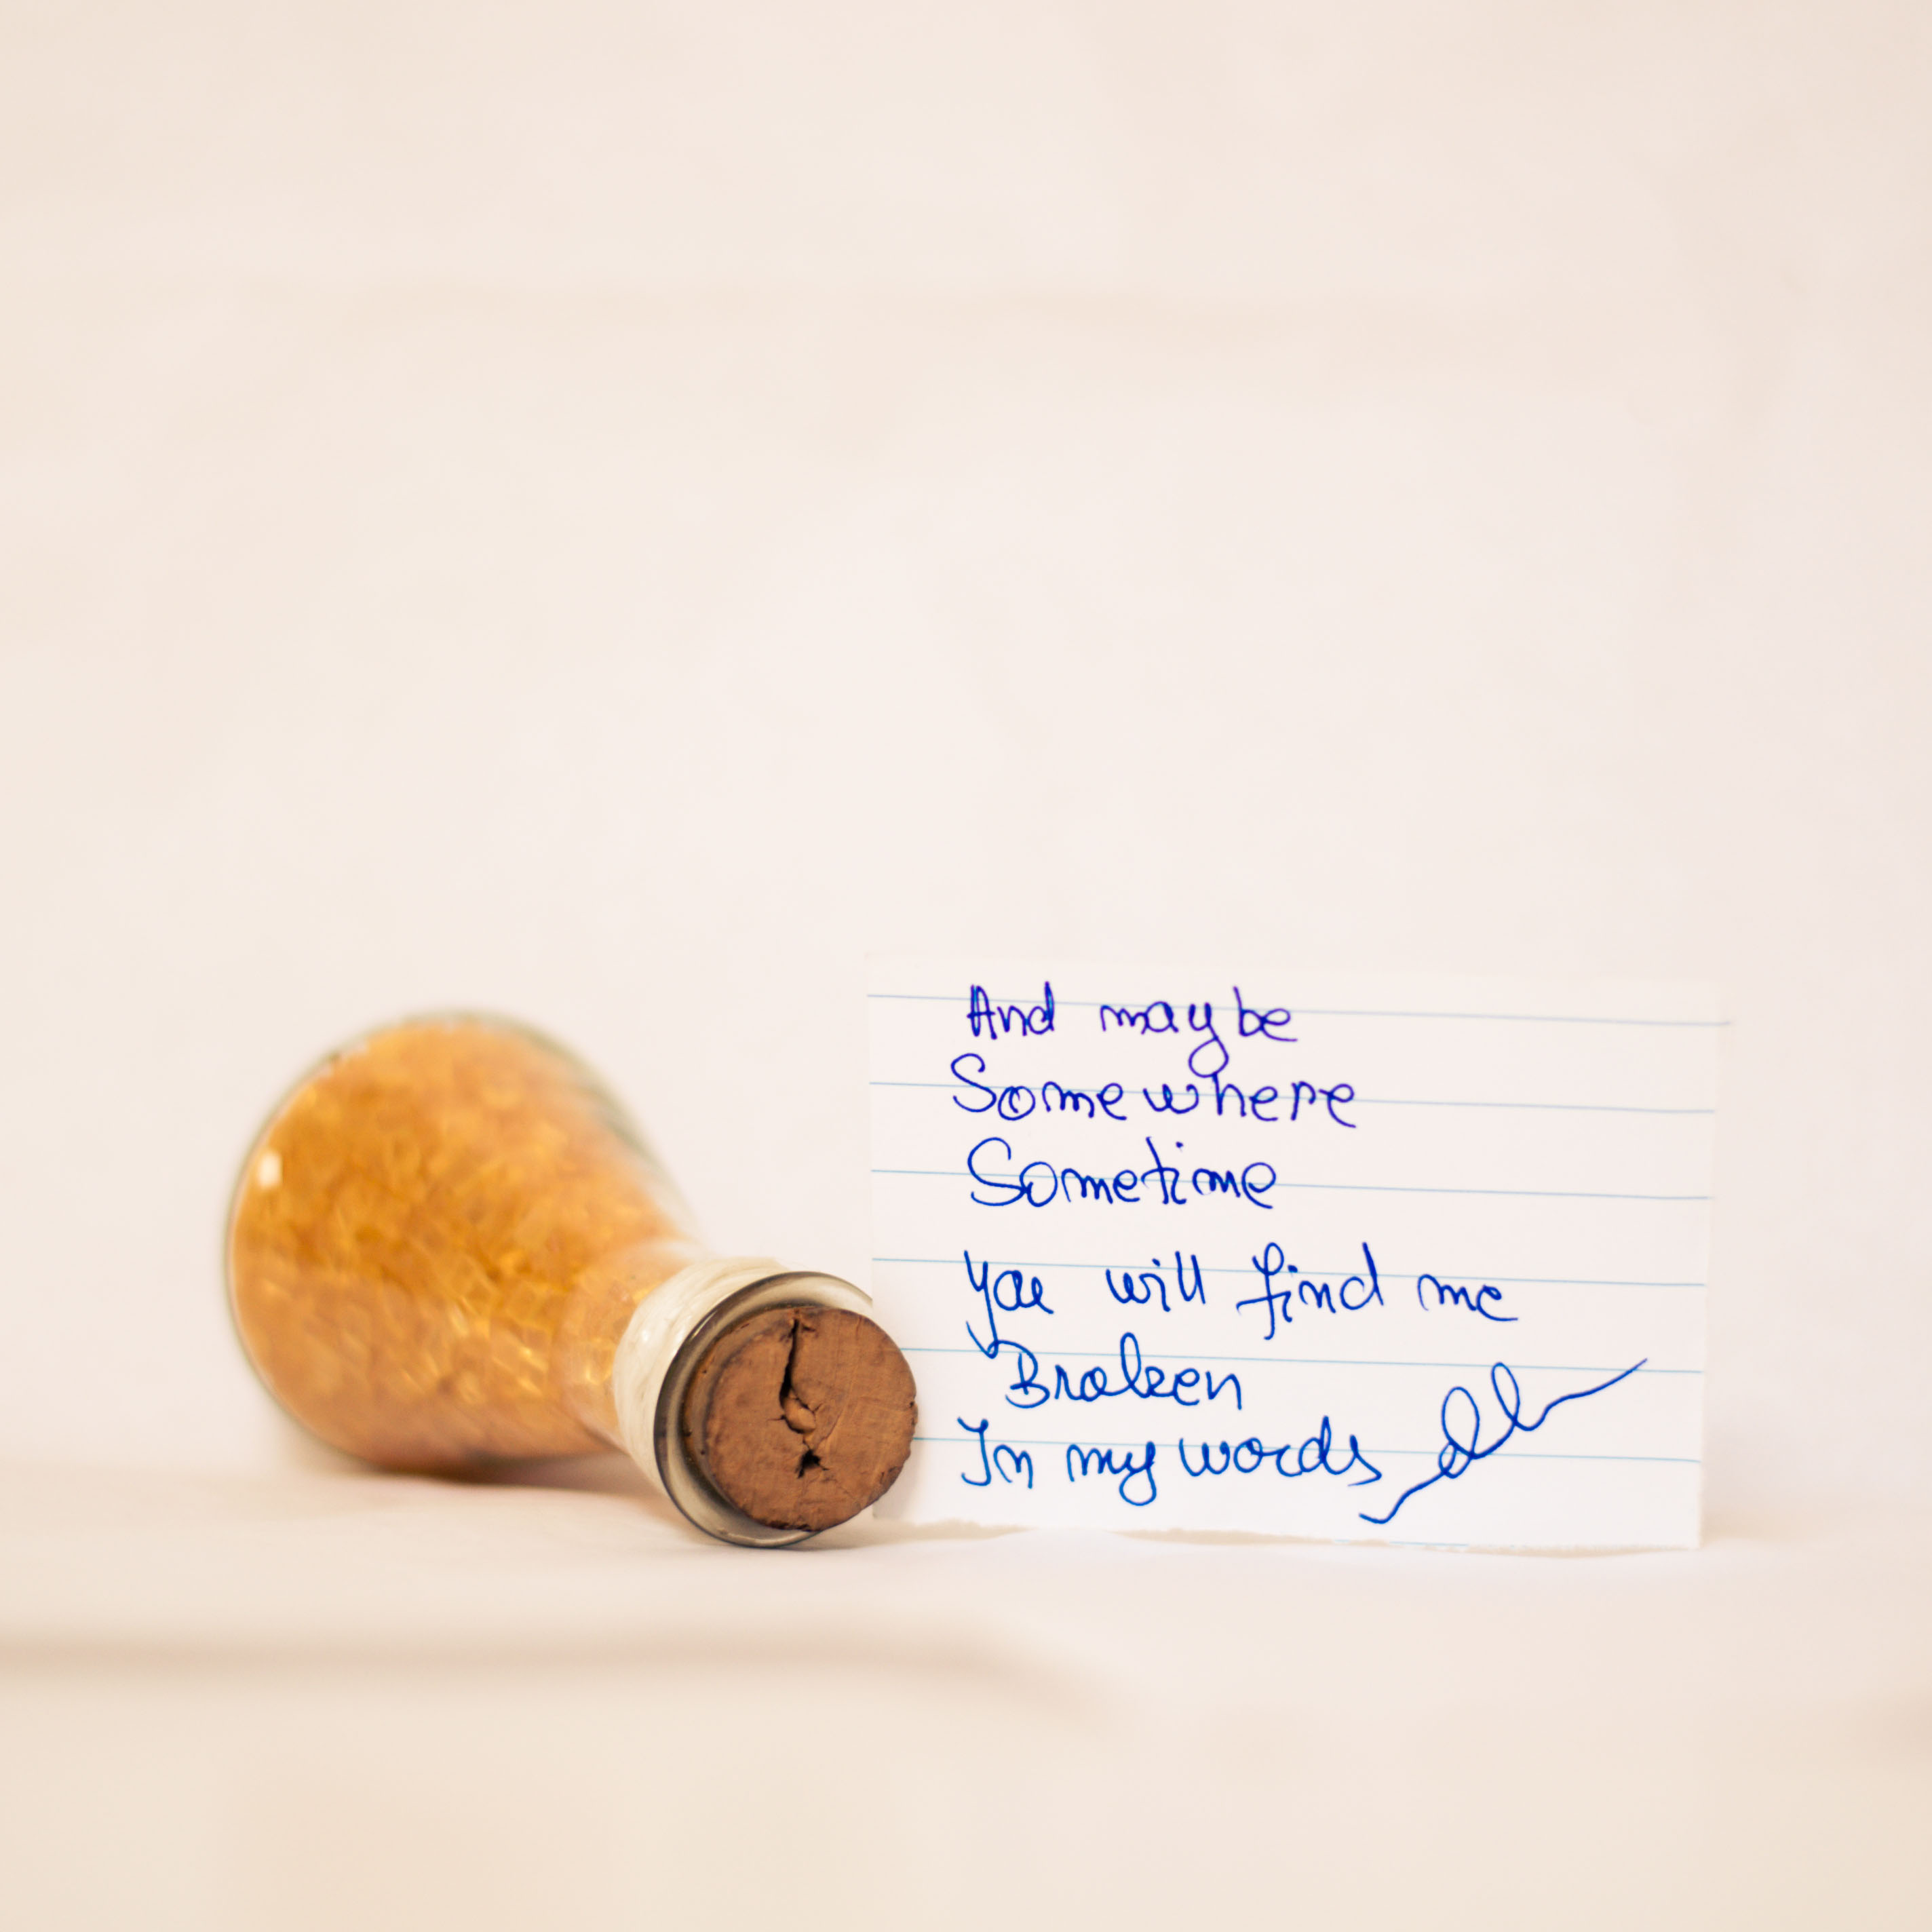 And maybe
Somewhere
Sometime
you will find me
Broken
In my words